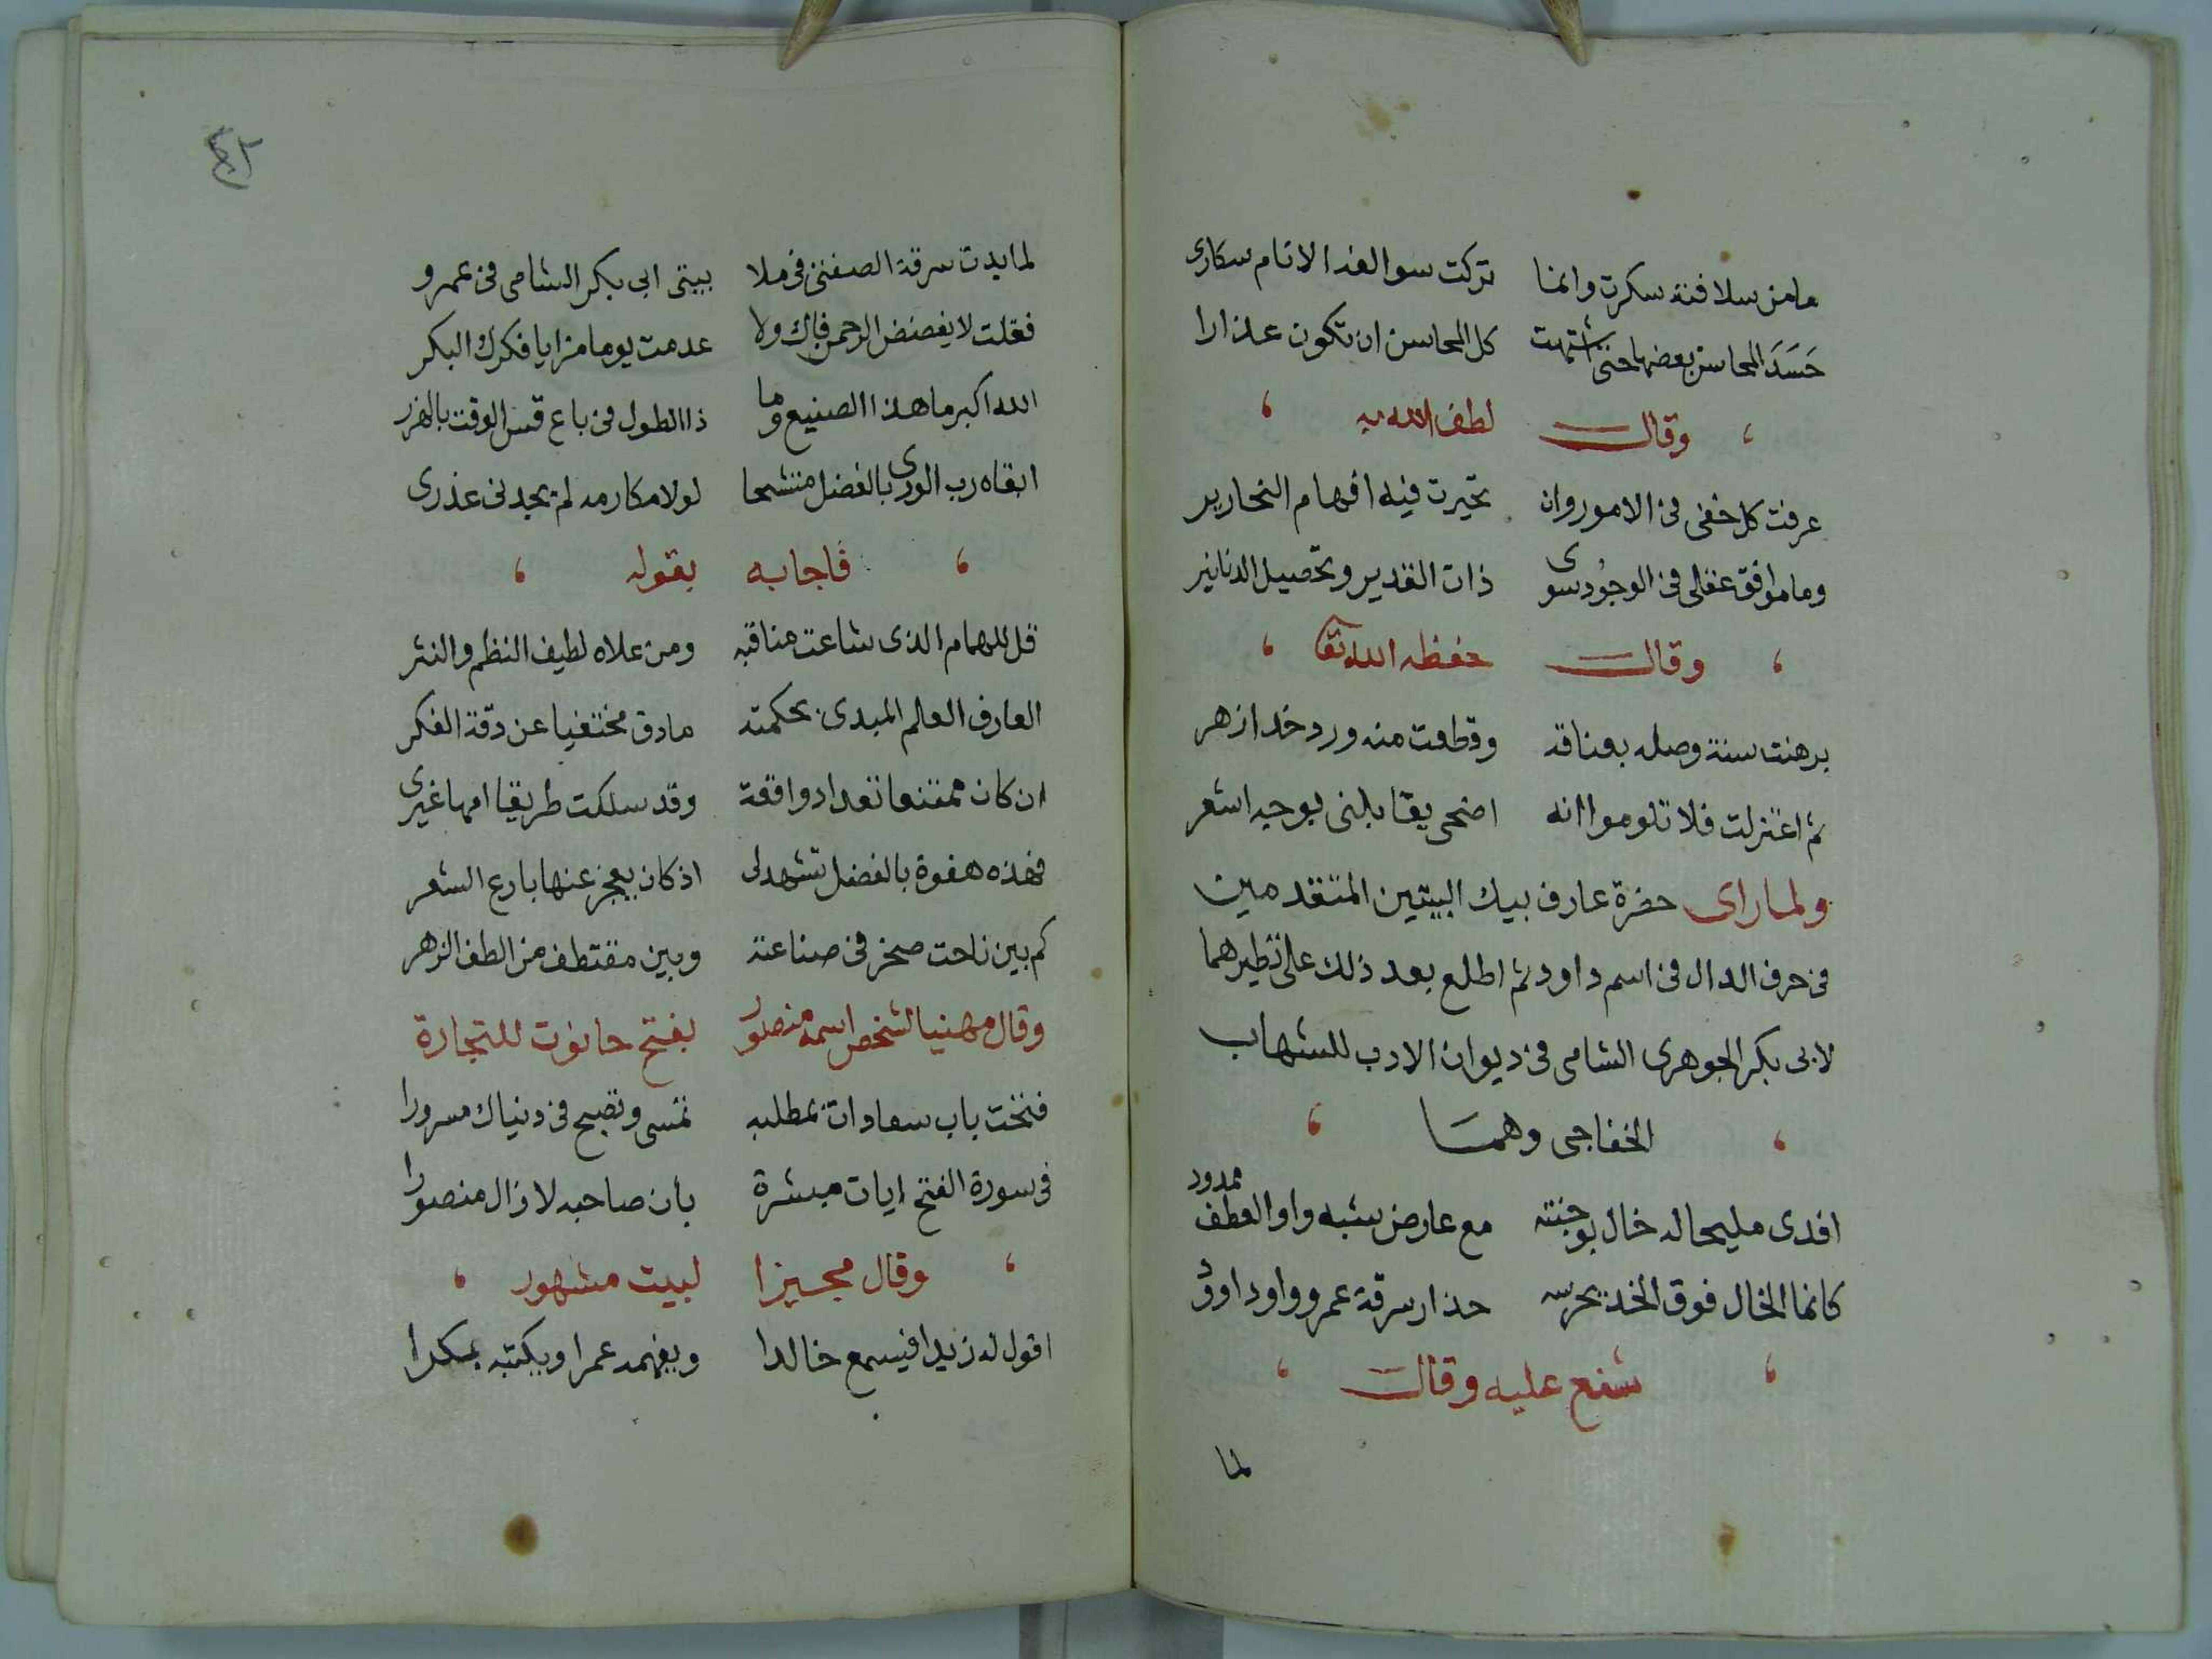 مامن سلافته سكرت وانما تركت سوالفه الانام سكارى
حَسَدَ المحاسن بعضها حتى اشتهت كل المحاسن ان تكون عذارا
وقال لطف الله به
عرفت كل خفى فى الامور وان تحيرت فيه افهام النحارير
وما موافق عقلى فى الوجود سوى ذات القدير وتحصيل الدنانير
وقال حفظه الله تعا
برهنت سنة وصله بعناقه وقطعت منه ورد خد ازهر
ثم اعتزلت فلا تلوموا انه اضحى يقابلنى بوجه اشعر
ولما راى حضرة عارف بيك البيتين المتقدمين
فى حرف الدال فى اسم داود ثم اطلع بعد ذلك على نظيرهما
لابى بكر الجوهرى الشامى فى ديوان الادب للشهاب
الخفاجى وهما
افدى مليحا له خال بوجنته مع عارض يشبه واو العطف ممدود
كانما الخال فوق الخد يحرسه حذار سرقة عمرو واو داوود
شنع عليه وقال
لما
لما بدت سرقة الصفتى فى ملا ببيتى ابى بكر الشامى فى عمرو
فقلت لا يفضض الرحمن فاك ولا عدمت يوما مزايا فكرك البكر
الله اكبر ما هذا الصنيع وما ذا الطول فى باع قس الوقت بالهزر
ابقاه رب الورى بالفضل متشحا لولا مكارمه لم يجدنى عذرى
فاجابه بقوله
قل للهمام الذى شاعت مناقبه ومن علاه لطيف النظم والنثر
العارف العالم المبدى بحكمته مادق مختفيا عن دقة الفكر
ان كان ممتنعا تعداد واقعة وقد سلكت طريقا امها غيرى
فهذه هفوة بالفضل تشهد لى اذ كان يعجز عنها بارع الشعر
كم بين ناحت صخر فى صناعته وبين مقتطف من الطف الزهر
وقال مهنيا لشخص اسمه منصور بفتح حانوت للتجارة
فتحت باب سعادات بمطلبه تمسى وتصبح فى دنياك مسرورا
فى سورة الفتح ايات مبشرة بان صاحبه لا زال منصورا
وقال مجيزا لبيت مشهور
اقول له زيدا فيسمع خالدا ويفهمه عمرا ويكتبه بكرا